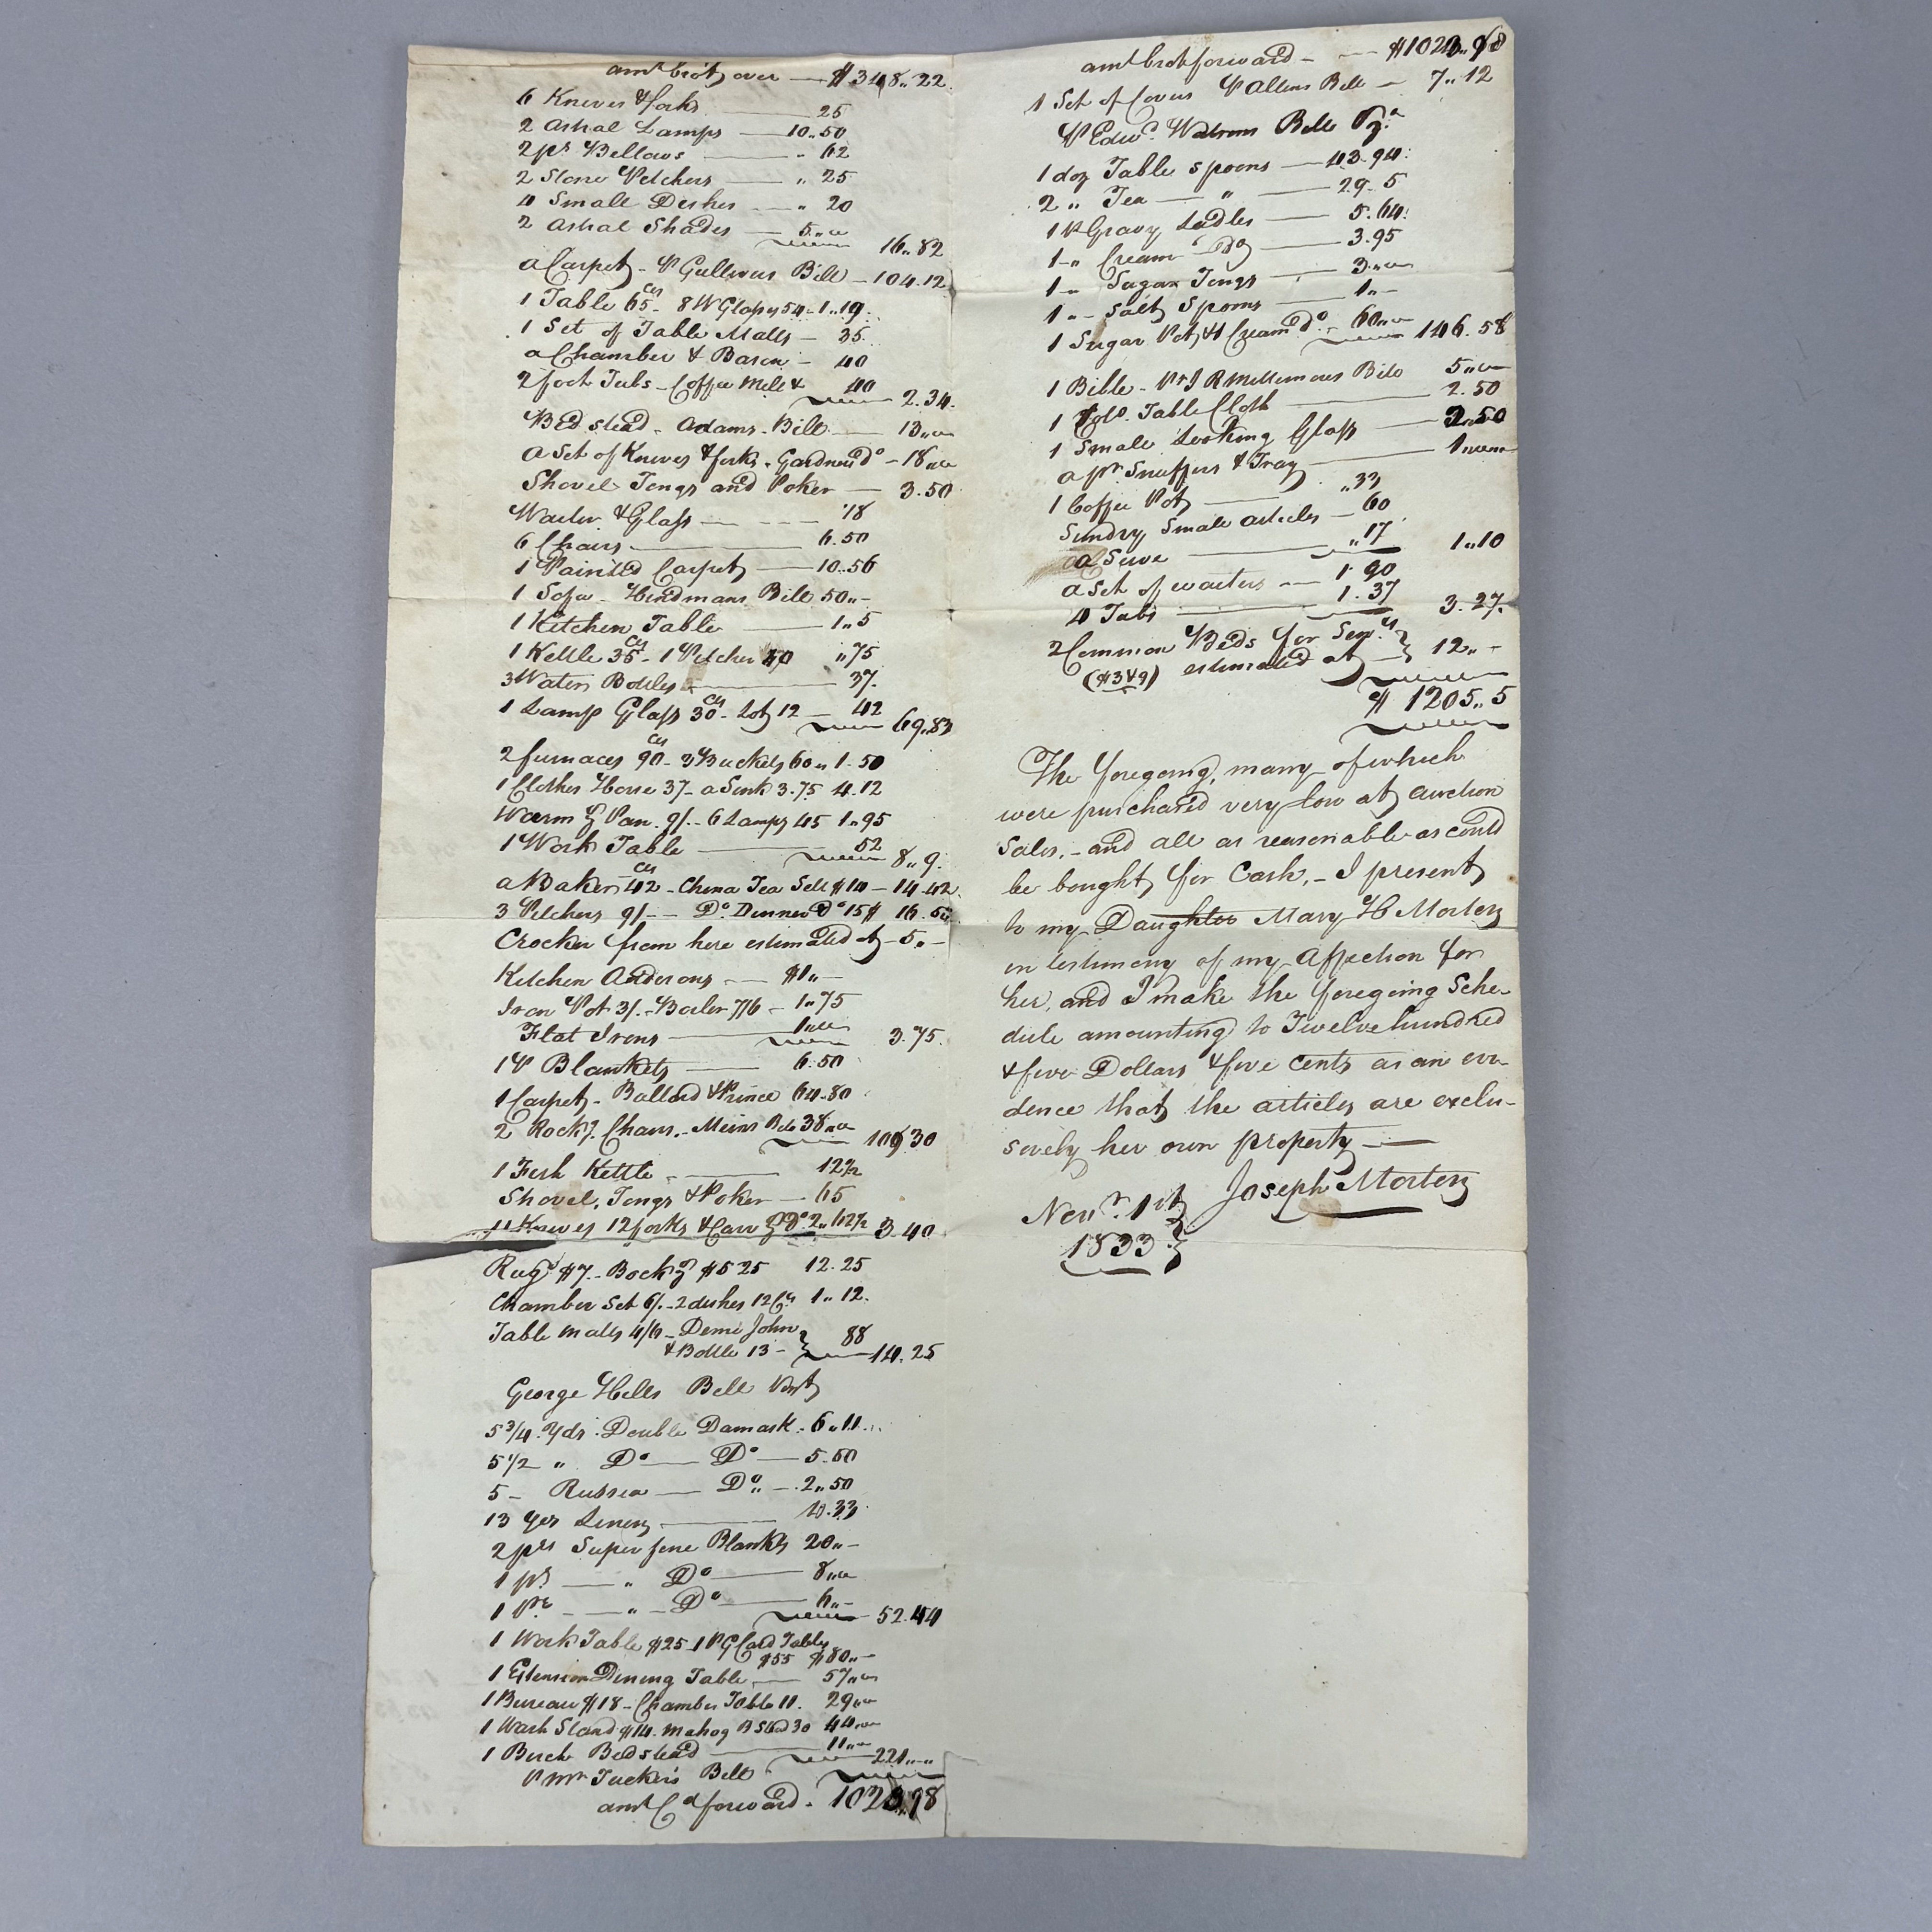 amt brot over — $348,,22
6 Knives & forks — 25
2 Astral Lamps — 10,,50
2 prs Bellows — ,, 62
2 Stone Pitchers — ,, 25
4 Small Dishes — ,, 20
2 Astral Shades — 5,,
16,,82
a Carpet - Gullivers Bill - 104.12
1 Table 65 cts - 8 W Glasses 54 - 1,,19
1 Set of Table Matts - 35
a Chamber & Bason - 40
2 foot Tubs - Coffee Mill & 40
2.34.
Bedstead - Adams - Bill — 13,,
a Set of Knives & forks - Gardners do - 18,,
Shovel Tongs and Poker — 3.50
Waiter & Glass — 18
6 Chairs — 6.50
1 Painted Carpet — 10.56
1 Sofa - Hindmans Bill 50,,-
1 Kitchen Table — 1,,5
1 Kettle 35 cts - 1 Pitcher 40 ,,75
3 Water Bottles — 37.
1 Lamp Glass 30 cts - Lot 12 — 42
69,,83
2 furnaces 90 cts - 3 Buckets 60 ,, 1.50
1 Clothes Horse 37 - a Sink 3.75 4.12
Warmg Pan. 9/. - 6 Lamps 45 1,,95
1 Work Table — 52
8,,9.
a Baker 42 cts - China Tea Sett $14 - 14.42
3 Pitchers 9/ - - Do. Dinner do 15$ 16.50
Crockery from here estimated at - 5,,-
Kitchen Andirons — $1,,—
Iron Pot 3/. - Boiler 7/6 - 1,,75
Flat Irons — 1,,
3.75.
1 P Blankets — 6.50
1 Carpet - Ballard & Prince 64.80
2 Rockg. Chairs. - Bill 38,,
109.30
1 Fish Kettle - — 12½
Shovel, Tongs & Poker — 65
11 Knives 12 forks & Carvg Do. 2,,62½ 3.40
Rug $7. - Bockg $5 25 12.25
Chamber Set 6/. - 2 dishes 12 Cts 1,,12.
Table matts 4/6 - Demi John
& Bottle 13 - } 88
14.25
George Hills Bill
5 3/4 Yds. Double Damask - 6,,11
5 1/2 ,, Do — Do — 5.50
5 - Russia — Do ,, - 2,,50
13 Yds Linen — 4.33
2 prs Super fine Blankts 20,,-
1 pr. — ,, Do — 8,,
1 Pr. - — ,, - Do — 6,,-
52.44
1 Work Table $25 - 1 P G Card Tables
$55 $80,,-
1 Extension Dining Table — 57,,
1 Bureau $18 - Chamber Table 11. 29,,
1 Wash Stand $14. Mahog B Sted 30 44,,
1 Birch Bedstead — 11,,
221,,
P Mr Tuckers Bill
amt Cd forward - 1023,,98
amt brot forward - — $1023,,98
1 Set of Covers P Allens Bill — 7,,12
P Edwd. Watsons Bill
1 doz Table Spoons — 43.94
2 ,, Tea — ,, — 29. 5
1 pr Gravy Ladles — 5.64
1 - ,, Cream Do — 3.95
1 - ,, Sugar Tongs — 3,,
1 - ,, Salt Spoons — 1,,-
1 Sugar Pot & 1 Cream do. - 60,, 146.58
1 Bible - Pr J R Bill 5,,
1 Table Cloth — 2.50
1 Small Looking Glass — 2,,50
a pr Snuffers & Tray — 1,,
1 Coffee Pot — ,,33
Sundry Small articles — 60
a Sieve — ,,17 1,,10
a Set of waiters — 1.90
4 Tubs — 1.37 3.27.
2 Common Beds for Servts }
($3&9) estimated at — } 12,,-
$ 1205,,5
The foregoing, many of which
were purchased very low at auction
Sales, - and all as reasonable as could
be bought for Cash, - I present
to my Daughter Mary H Morton
in testimony of my Affection for
her, and I make the foregoing Sche-
dule amounting to Twelve hundred
& five Dollars & five Cents as an evi-
dence that the articles are exclu-
sively her own property —
Joseph Morton
Novr. 1st }
1833 }